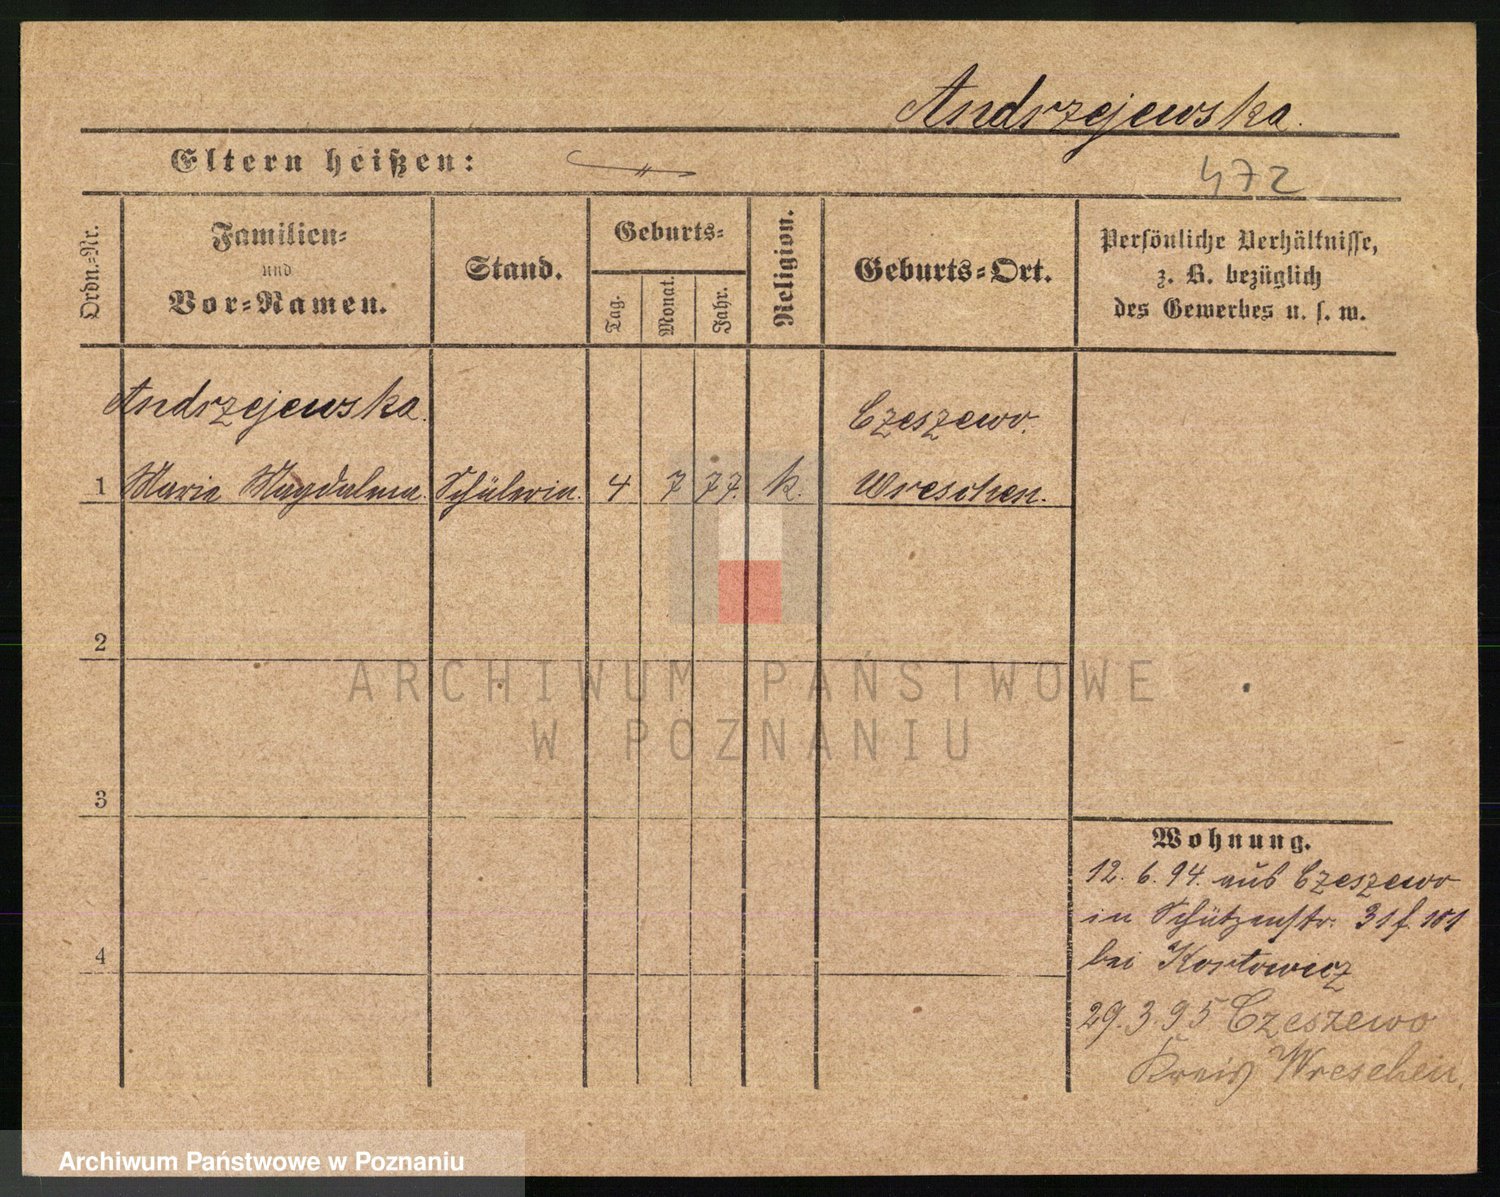 Andrzejewska.
Eltern heißen: — " —
472
Ordn.=Nr.
Familien=
und
Vor=Namen.
Stand.
Geburts=
Tag.
Monat.
Jahr.
Religion.
Geburts=Ort.
Persönliche Verhältnisse,
z. B. bezüglich
des Gewerbes u. s. w.
Andrzejewska. Czeszewo.
1 Maria Magdalena. Schülerin. 4 7 77. k. Wreschen.
2
3
4
Wohnung.
12. 6. 94. aus Czeszewo
in Schützenstr. 31 f. 101
bei Kortowicz
29. 3. 95 Czeszewo
Kreis Wreschen.
ARCHIWUM PAŃSTWOWE
W POZNANIU
Archiwum Państwowe w Poznaniu